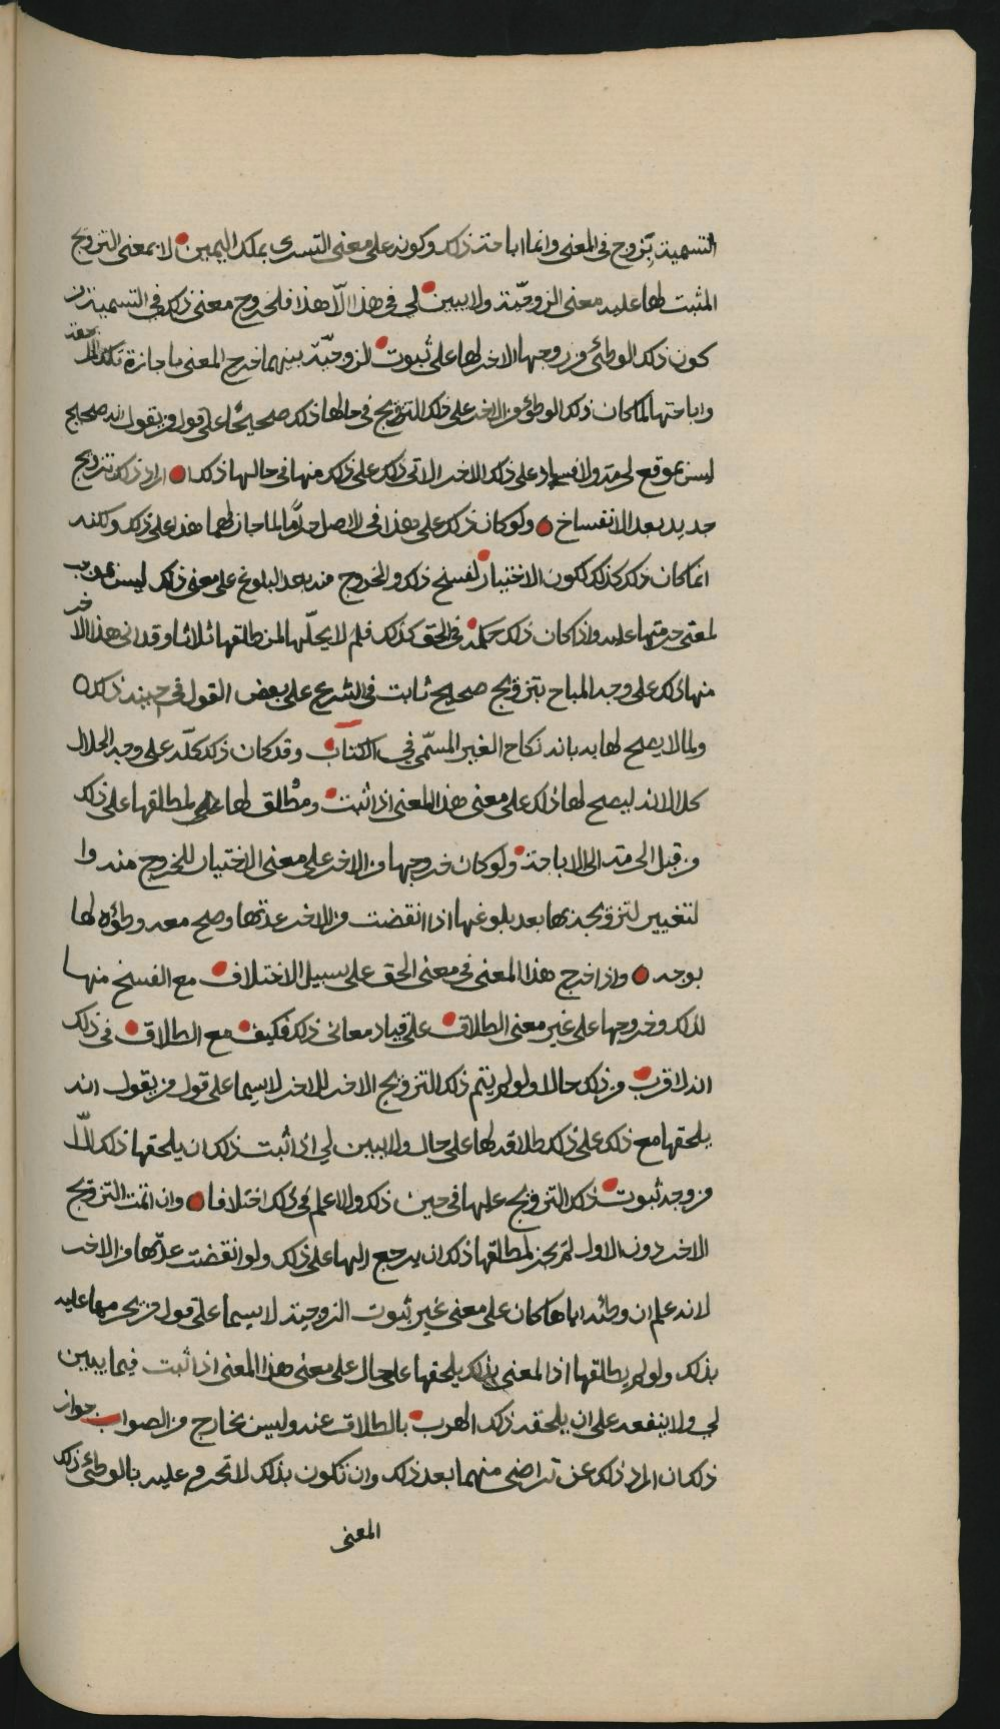 التسمية بتزوج في المعنى وانما اباحة ذلك وكونه على معنى التسرى بملك اليمين لا بمعنى التزويج
المثبت لها عليه معنى الزوجية ولا يبين لي في هذا الا هذا فلخروج معنى ذلك في التسمية من
كون ذلك الوطئ من زوجها الاخر لها على ثبوت الزوجية بينهما خرج المعنى باجازة تلك الحقة
واباحتها لما كان ذلك الوطئ من الاخر على ذلك التزويج في حالها ذلك صحيحا على قول من يقول انه صحيح
ليس بموقع لحرمة ولا فساد على ذلك الاخر الاتى ذلك على ذلك منها في حالها ذلك اراد ذلك تزويج
جديد بعد الانفساخ ولو كان ذلك على هذا في الاصل حراما لما جاز لهما هذا على ذلك ولكنه
انما كان ذلك كذلك لكون الاختيار لفسخ ذلك والخروج منه بعد البلوغ على معنى ذلك ليس
لمعنى حرمتها عليه واذا كان ذلك حكمه في الحق كذلك فلم لا يحلها لمن طلقها ثلاثا وقد اتى هذا الاخر
منها ذلك على وجه المباح بتزويج صحيح ثابت في الشرع على بعض القول في حينه ذلك
ولما لا يصح لها به بانه نكاح الغير المسمى في الكتاب وقد كان ذلك كله على وجه الحلال
كلا لانه ليصح لها ذلك على معنى هذا المعنى اذا ثبت ومطلق لها على لمطلقها على ذلك
من قبل الحرمة الى الاباحة ولو كان خروجها من الاخر على معنى الاختيار للخروج منه وا
لتغيير لتزويجه بها بعد بلوغها اذا انقضت من الاخر عدتها وصح معه وطؤه لها
بوجه واذا خرج هذا المعنى في معنى الحق على سبيل الاختلاف مع الفسخ منها
لذلك وخروجها على غير معنى الطلاق على قياد معانى ذلك فكيف مع الطلاق في ذلك
انه لاقرب من ذلك حالا ولو لم يتم ذلك التزويج الاخر للاخر لا سيما على قول من يقول انه
يلحقها مع ذلك على ذلك طلاقه لها على حال ولا يبين لي اذا ثبت ذلك ان يلحقها ذلك الا
من وجه ثبوت ذلك التزويج عليها في حين ذلك ولا اعلم في ذلك اختلافا وان اتمت التزويج
الاخر دون الاول لم يجز لمطلقها ذلك ان يرجع اليها على ذلك ولو انقضت عدتها من الاخر
لانه علم ان وطئه اياها كان على معنى غير ثبوت الزوجية لا سيما على قول من يحرمها عليه
بذلك ولو لم يطلقها اذ المعنى بذلك يلحقها على حال على معنى هذا المعنى اذا ثبت فيما يبين
لي ولا ينفعه على ان يلحقه ذلك الهرب بالطلاق عنه وليس بخارج من الصواب جواز
ذلك ان اراد ذلك عن تراضى منهما بعد ذلك وان تكون بذلك لا تحرم عليه بالوطئ ذلك
المعنى